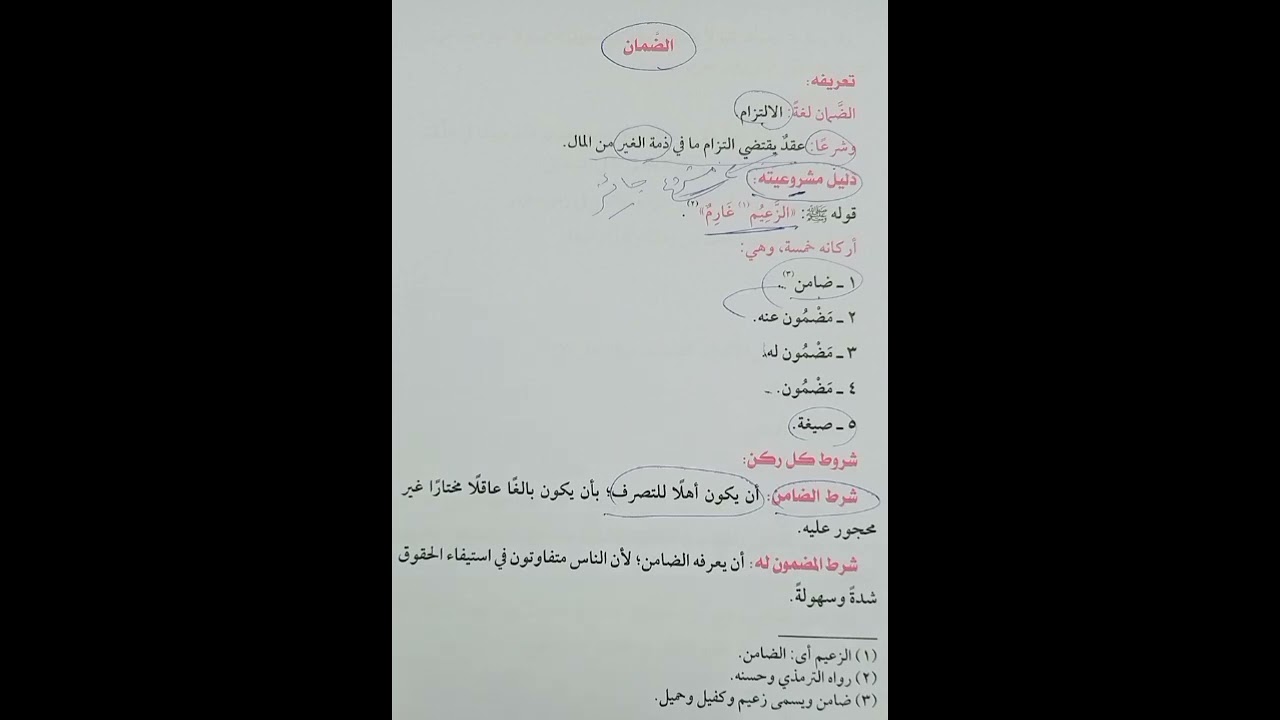 الضَّمان
تعريفه:
الضَّمان لغةً: الالتزام
وشرعًا: عقدٌ يقتضي التزام ما في ذمة الغير من المال.
دليل مشروعيته:
مشروع جائز
قوله ﷺ: «الزَّعِيْم(١) غَارِمٌ»(٢).
أركانه خمسة، وهي:
١ ـ ضامن(٣).
٢ ـ مَضْمُون عنه.
٣ ـ مَضْمُون له.
٤ ـ مَضْمُون.
٥ ـ صيغة.
شروط كل ركن:
شرط الضامن: أن يكون أهلًا للتصرف؛ بأن يكون بالغًا عاقلًا مختارًا غير
محجور عليه.
شرط المضمون له: أن يعرفه الضامن؛ لأن الناس متفاوتون في استيفاء الحقوق
شدةً وسهولةً.
(١) الزعيم أى: الضامن.
(٢) رواه الترمذي وحسنه.
(٣) ضامن ويسمى زعيم وكفيل وحميل.